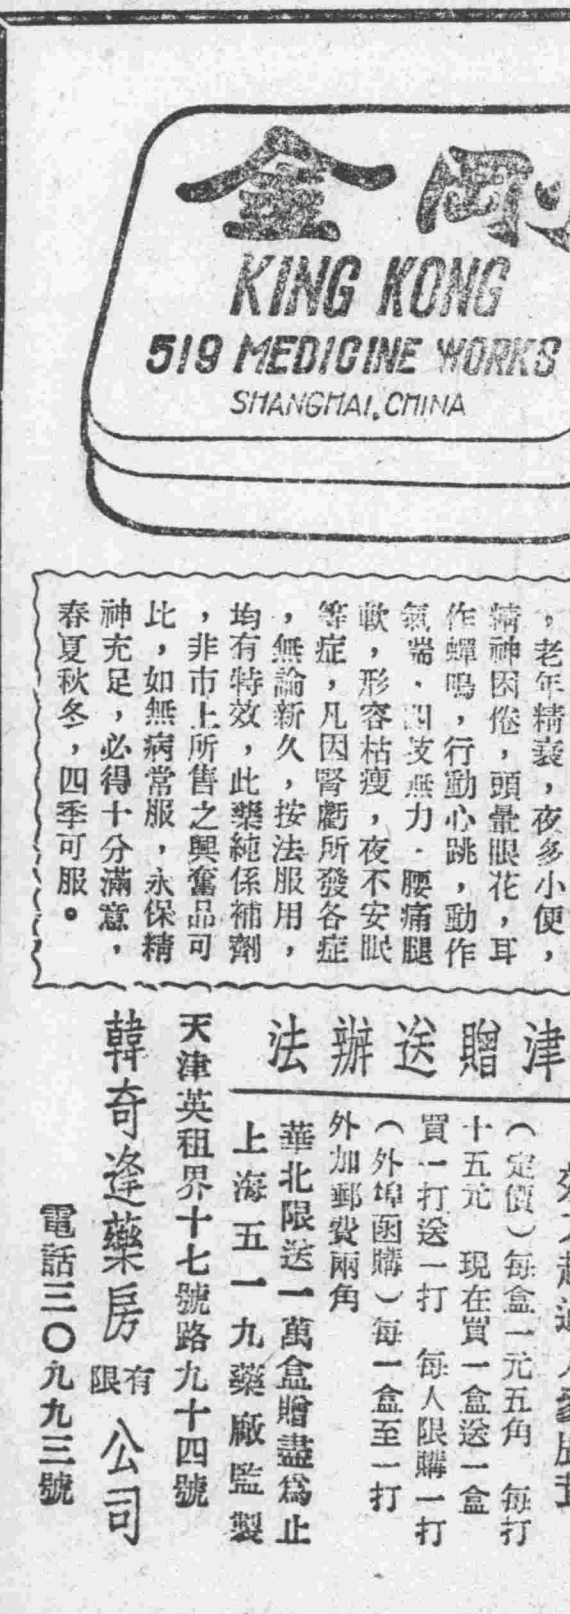 金剛
KING KONG
519 MEDICINE WORKS
SHANGHAI, CHINA
，老年精衰，夜多小便，
精神困倦，頭暈眼花，耳
作蟬鳴，行動心跳，動作
氣喘．四肢無力．腰痛腿
軟，形容枯瘦，夜不安眠
等症，凡因腎虧所發各症
，無論新久，按法服用，
均有特效，此藥純係補劑
，非市上所售之興奮品可
比，如無病常服，永保精
神充足，必得十分滿意，
春夏秋冬，四季可服。
津贈送辦法
（定價）每盒一元五角　每打
十五元　現在買一盒送一盒
買一打送一打　每人限購一打
（外埠函購）每一盒至一打
外加郵費兩角
華北限送一萬盒贈盡爲止
上海五一九藥廠監製
天津英租界十七號路九十四號
韓奇逢藥房有限公司
電話三〇九九三號